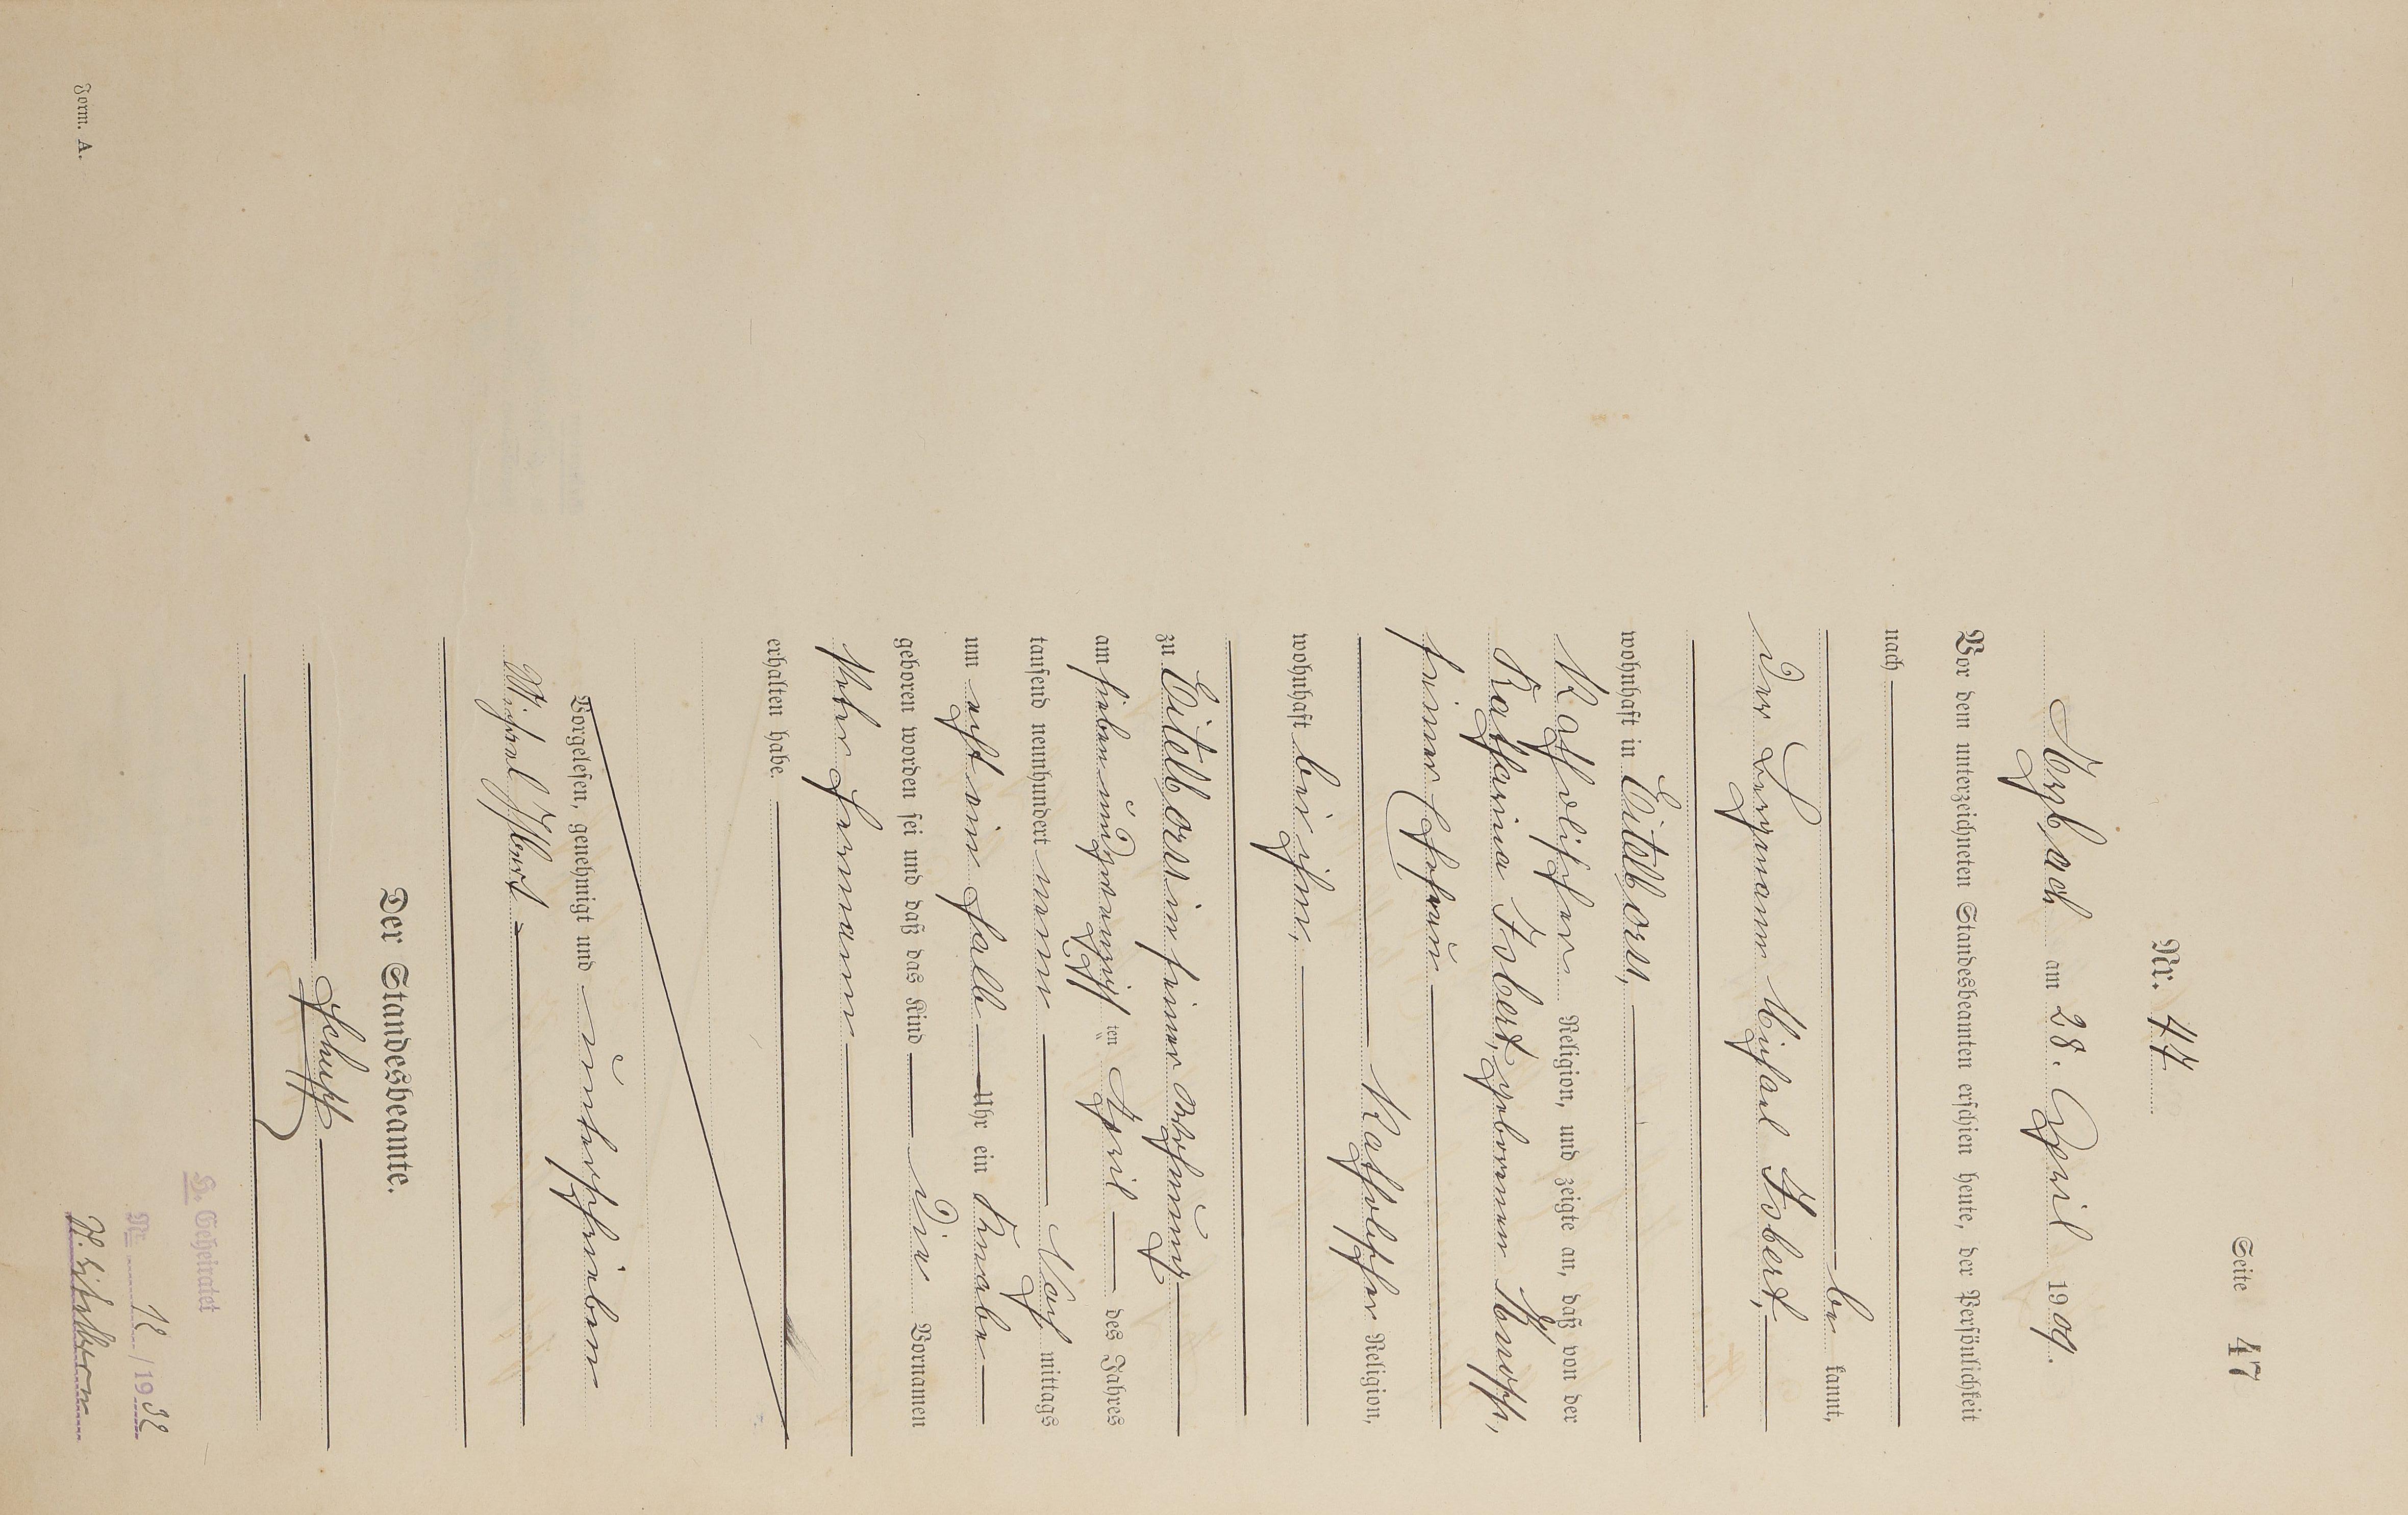 Seite 47
Nr. 47
Mogendorf am 28. April 1909.
Vor dem unterzeichneten Standesbeamten erschien heute, der Persönlichkeit
nach
be kannt,
der Bergmann Michael Isbert,
wohnhaft in Eitelborn,
Katholischer Religion, und zeigte an, daß von der
Katharina Isbert, geborenen Knopp,
seiner Ehefrau
Katholischer Religion,
wohnhaft bei ihm,
zu Eitelborn in seiner Wohnung
am siebenundzwanzigsten April des Jahres
tausend neunhundert neun Nach mittags
um acht ein halb Uhr ein Knabe
geboren worden sei und daß das Kind die Vornamen
Peter Hermann
erhalten habe.
Vorgelesen, genehmigt und unterschrieben
Michael Isbert
Der Standesbeamte.
Schupp
H. Geheiratet
Nr. 12 / 1932
Form. A.